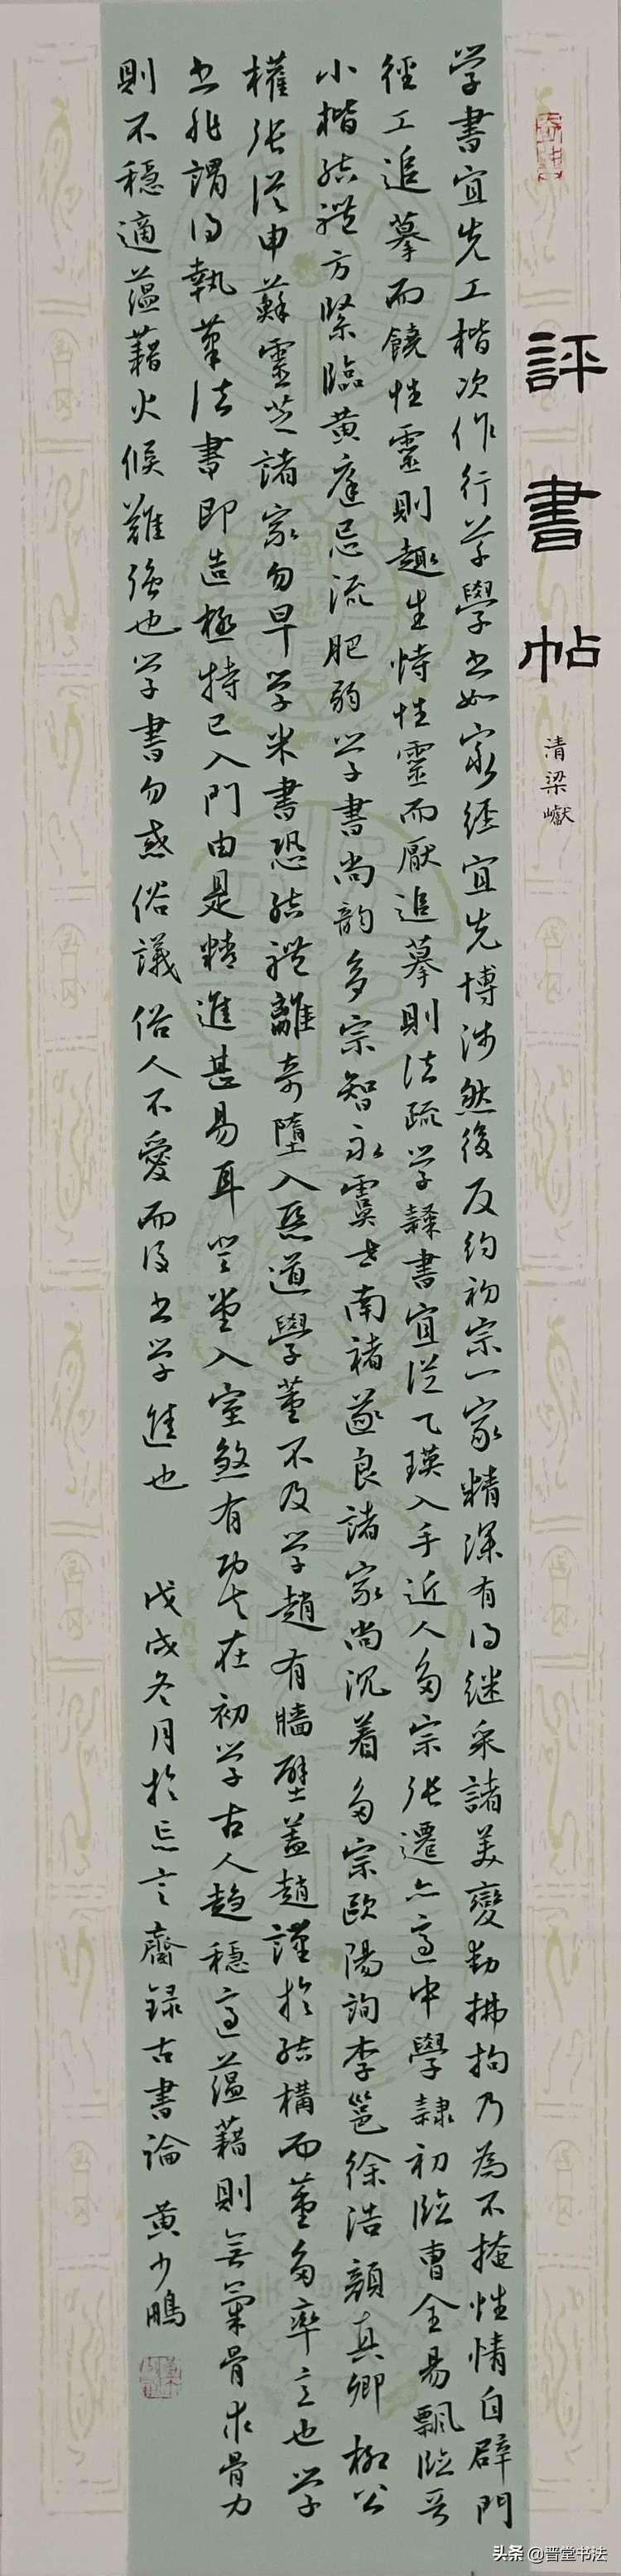 評書帖
清梁巘
学書宜先工楷次作行草學书如窮經宜先博涉然後反约初宗一家精深有得继采諸美變動拂拘乃為不掩性情自辟門
徑工追摹而饒性靈則趣生恃性靈而厭追摹則法疏学隸書宜从乙瑛入手近人多宗张遷亦適中學隷初临曹全易飄临晋
小楷结體方緊臨黄庭忌流肥弱学書尚韵多宗智永虞世南褚遂良諸家尚沉着多宗歐陽詢李邕徐浩顏真卿柳公
權张从申蘇靈芝諸家勿早学米書恐结體離奇墮入惡道學董不及学趙有牆壁蓋趙謹於结構而董多率意也学
书非謂得執筆法書即造極特已入門由是精進甚易耳登堂入室煞有功夫在初学古人趋穩适蕴藉則無氣骨求骨力
則不穩適蕴藉火候難強也学書勿惑俗議俗人不愛而後书学進也 戊戌冬月於忘言齋録古書論 黄少鵬
头条 @晋堂书法